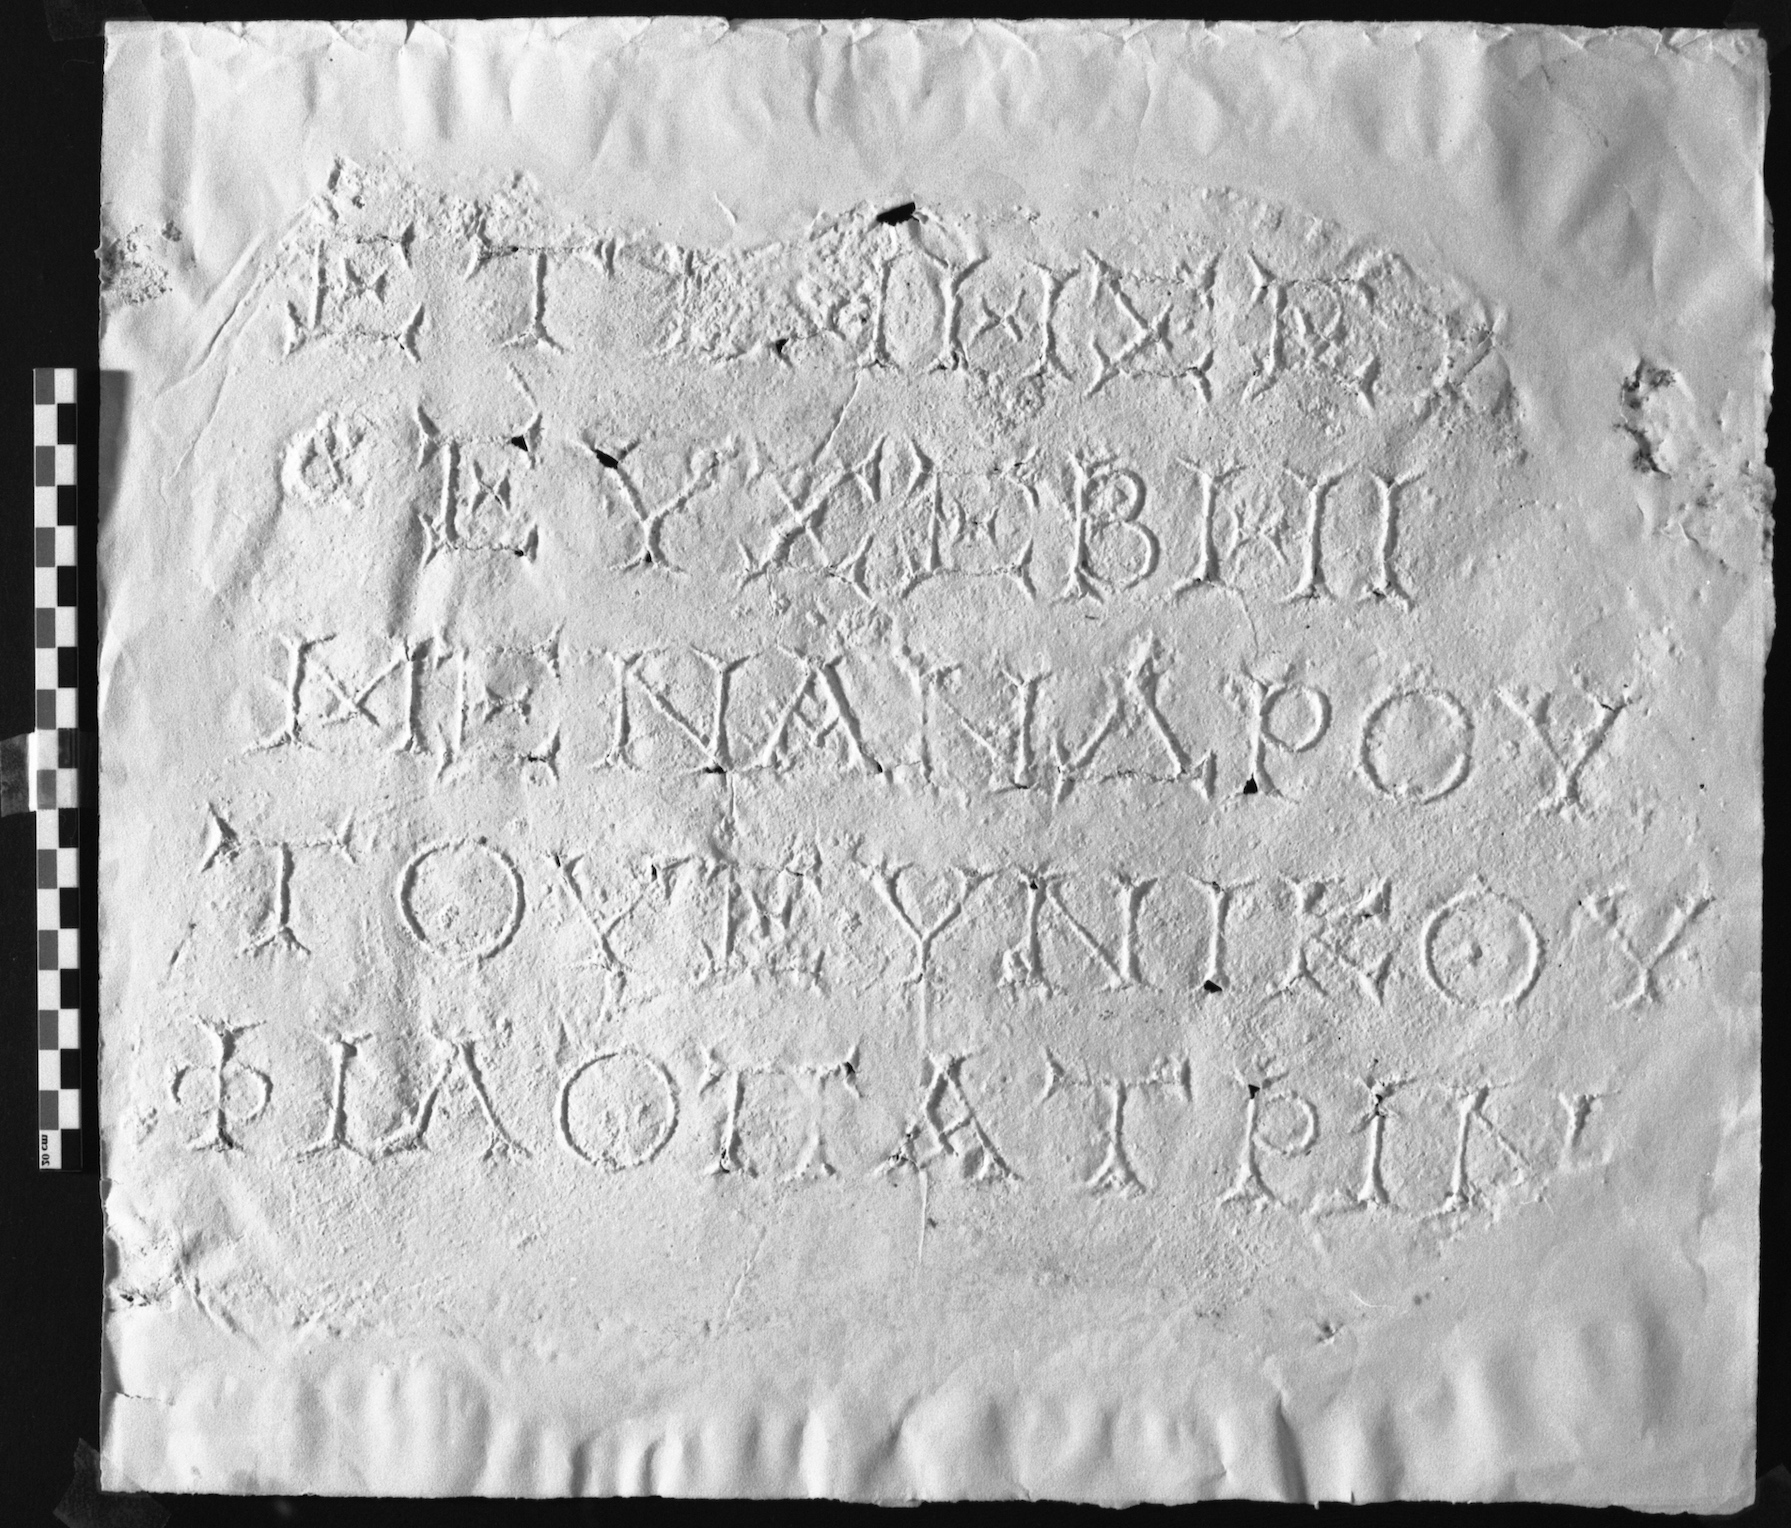 ΕΤΙΜΗΣΕΝ
ΕΥΣΕΒΗΝ
ΜΕΝΑΝΔΡΟΥ
ΤΟΥΕΥΝΙΚΟΥ
ΦΙΛΟΠΑΤΡΙΝ
30 cm